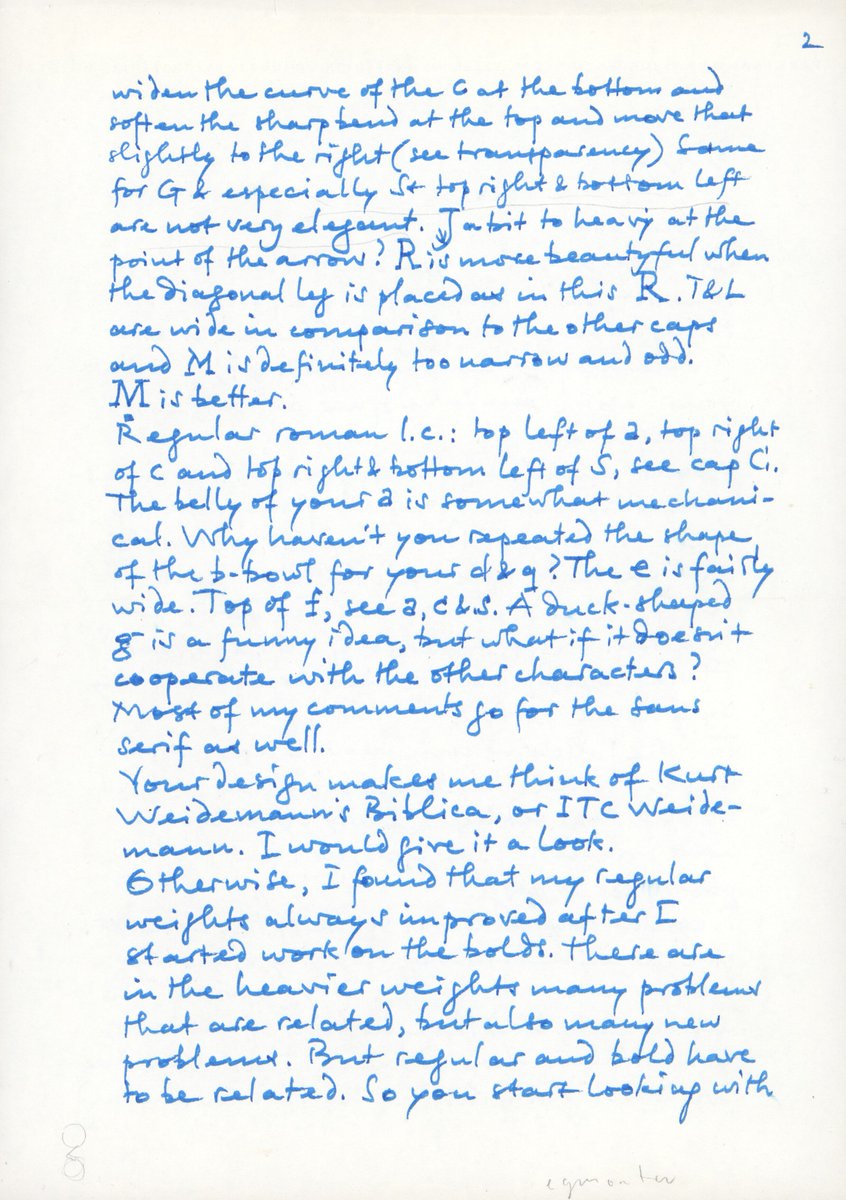 2
widen the curve of the C at the bottom and
soften the sharp bend at the top and move that
slightly to the right (see transparency) Same
for G & especially St top right & bottom left
are not very elegant. J a bit to heavy at the
point of the arrow? R is more beautyful when
the diagonal leg is placed as in this R. T&L
are wide in comparison to the other caps
and M is definitely too narrow and odd.
M is better.
Regular roman l.c.: top left of a, top right
of c and top right & bottom left of S, see cap C.
The belly of your a is somewhat mechani-
cal. Why haven't you repeated the shape
of the b-bowl for your d & q? The e is fairly
wide. Top of f, see a, c & s. A duck-shaped
g is a funny idea, but what if it doesn't
cooperate with the other characters?
Most of my comments go for the sans
serif as well.
Your design makes me think of Kurt
Weidemann's Biblica, or ITC Weide-
mann. I would give it a look.
Otherwise, I found that my regular
weights always improved after I
started work on the bolds. There are
in the heavier weights many problems
that are related, but also many new
problems. But regular and bold have
to be related. So you start looking with
g
egmonter